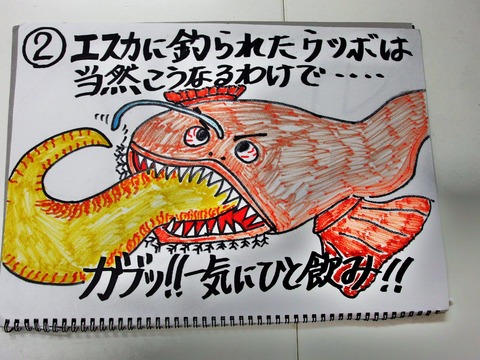 ② エスカに釣られたウツボは
当然こうなるわけで‥‥
ガブッ!!一気にひと飲み!!